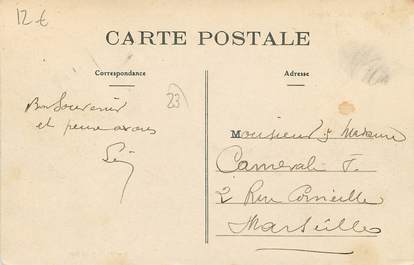 12 €
CARTE POSTALE
Correspondance
Adresse
23
Bon Souvenir
et
Monsieur & Madame
2 Rue Corneille
Marseille